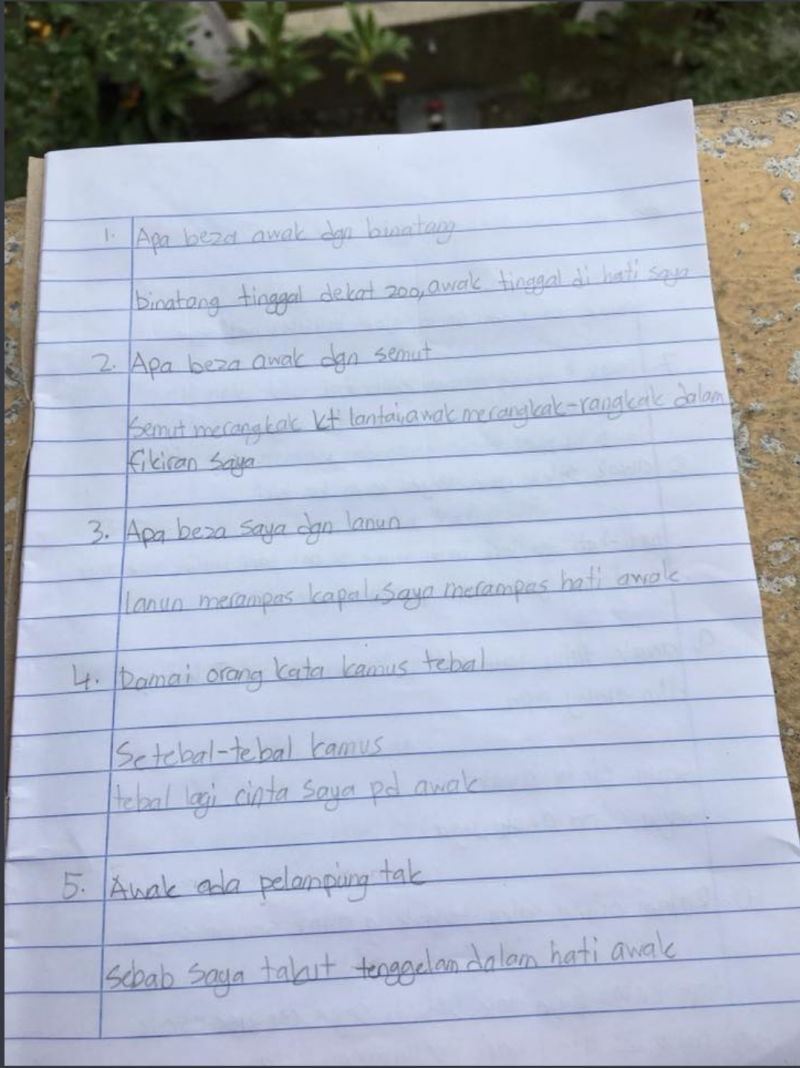 1. Apa beza awak dgn binatang
binatang tinggal dekat zoo, awak tinggal di hati saya
2. Apa beza awak dgn semut
Semut merangkak kt lantai, awak merangkak-rangkak dalam
fikiran saya
3. Apa beza saya dgn lanun
lanun merampas kapal, saya merampas hati awak
4. Ramai orang kata kamus tebal
Setebal-tebal kamus
tebal lagi cinta saya pd awak
5. Awak ada pelampung tak
sebab saya takut tenggelam dalam hati awak